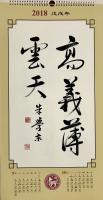 2018 戊戌年
高義薄
雲天